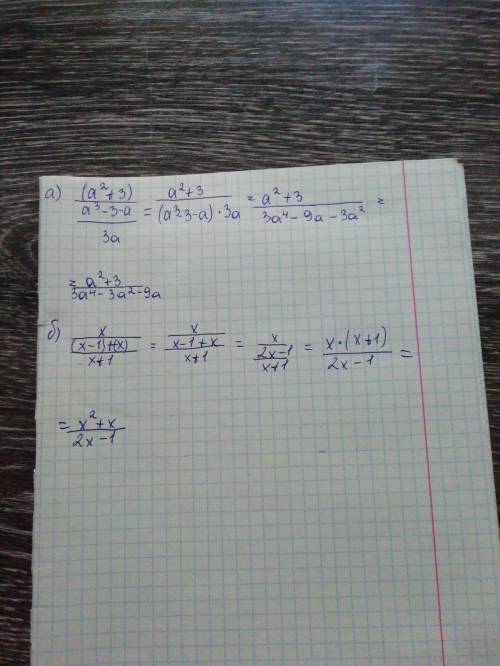 а) (a²+3)/((a³-3-a)/3a) = (a²+3)/((a³-3-a)·3a) = (a²+3)/(3a⁴-9a-3a²) =
= (a²+3)/(3a⁴-3a²-9a)
б) x/(((x-1)+(x))/(x+1)) = x/((x-1+x)/(x+1)) = x/((2x-1)/(x+1)) = (x·(x+1))/(2x-1) =
= (x²+x)/(2x-1)